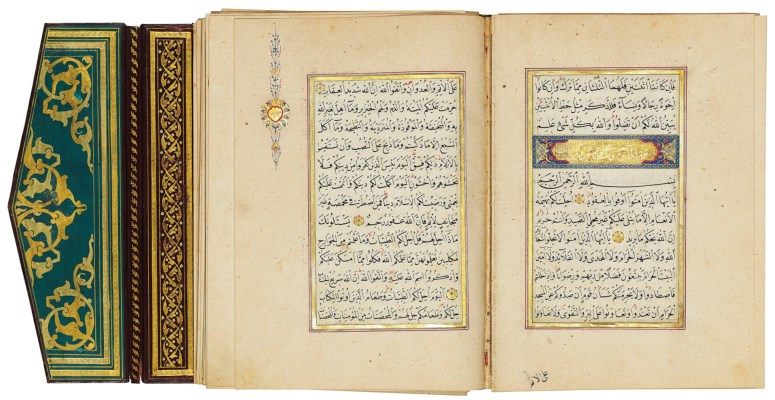 فَاِنْ كَانَتَا اثْنَتَيْنِ فَلَهُمَا الثُّلُثَانِ مِمَّا تَرَكَ وَاِنْ كَانُوا
اِخْوَةً رِجَالًا وَنِسَاءً فَلِلذَّكَرِ مِثْلُ حَظِّ الْاُنْثَيَيْنِ
يُبَيِّنُ اللّٰهُ لَكُمْ اَنْ تَضِلُّوا وَاللّٰهُ بِكُلِّ شَيْءٍ عَلِيمٌ
بِسْمِ اللّٰهِ الرَّحْمٰنِ الرَّحِيمِ
يَا اَيُّهَا الَّذِينَ اٰمَنُوا اَوْفُوا بِالْعُقُودِ اُحِلَّتْ لَكُمْ بَهِيمَةُ
الْاَنْعَامِ اِلَّا مَا يُتْلٰى عَلَيْكُمْ غَيْرَ مُحِلِّي الصَّيْدِ وَاَنْتُمْ حُرُمٌ
اِنَّ اللّٰهَ يَحْكُمُ مَا يُرِيدُ يَا اَيُّهَا الَّذِينَ اٰمَنُوا لَا تُحِلُّوا شَعَائِرَ
اللّٰهِ وَلَا الشَّهْرَ الْحَرَامَ وَلَا الْهَدْيَ وَلَا الْقَلَائِدَ وَلَا اٰمِّينَ
الْبَيْتَ الْحَرَامَ يَبْتَغُونَ فَضْلًا مِنْ رَبِّهِمْ وَرِضْوَانًا وَاِذَا حَلَلْتُمْ
فَاصْطَادُوا وَلَا يَجْرِمَنَّكُمْ شَنَاٰنُ قَوْمٍ اَنْ صَدُّوكُمْ عَنِ الْمَسْجِدِ
الْحَرَامِ اَنْ تَعْتَدُوا وَتَعَاوَنُوا عَلَى الْبِرِّ وَالتَّقْوٰى وَلَا تَعَاوَنُوا
على الاثم
عَلَى الْاِثْمِ وَالْعُدْوَانِ وَاتَّقُوا اللّٰهَ اِنَّ اللّٰهَ شَدِيدُ الْعِقَابِ
حُرِّمَتْ عَلَيْكُمُ الْمَيْتَةُ وَالدَّمُ وَلَحْمُ الْخِنْزِيرِ وَمَا اُهِلَّ لِغَيْرِ اللّٰهِ
بِهِ وَالْمُنْخَنِقَةُ وَالْمَوْقُوذَةُ وَالْمُتَرَدِّيَةُ وَالنَّطِيحَةُ وَمَا اَكَلَ
السَّبُعُ اِلَّا مَا ذَكَّيْتُمْ وَمَا ذُبِحَ عَلَى النُّصُبِ وَاَنْ تَسْتَقْسِمُوا
بِالْاَزْلَامِ ذٰلِكُمْ فِسْقٌ اَلْيَوْمَ يَئِسَ الَّذِينَ كَفَرُوا مِنْ دِينِكُمْ فَلَا
تَخْشَوْهُمْ وَاخْشَوْنِ اَلْيَوْمَ اَكْمَلْتُ لَكُمْ دِينَكُمْ وَاَتْمَمْتُ عَلَيْكُمْ
نِعْمَتِي وَرَضِيتُ لَكُمُ الْاِسْلَامَ دِينًا فَمَنِ اضْطُرَّ فِي مَخْمَصَةٍ غَيْرَ
مُتَجَانِفٍ لِاِثْمٍ فَاِنَّ اللّٰهَ غَفُورٌ رَحِيمٌ يَسْئَلُونَكَ
مَاذَا اُحِلَّ لَهُمْ قُلْ اُحِلَّ لَكُمُ الطَّيِّبَاتُ وَمَا عَلَّمْتُمْ مِنَ الْجَوَارِحِ
مُكَلِّبِينَ تُعَلِّمُونَهُنَّ مِمَّا عَلَّمَكُمُ اللّٰهُ فَكُلُوا مِمَّا اَمْسَكْنَ عَلَيْكُمْ
وَاذْكُرُوا اسْمَ اللّٰهِ عَلَيْهِ وَاتَّقُوا اللّٰهَ اِنَّ اللّٰهَ سَرِيعُ الْحِسَابِ
اَلْيَوْمَ اُحِلَّ لَكُمُ الطَّيِّبَاتُ وَطَعَامُ الَّذِينَ اُوتُوا الْكِتَابَ
حِلٌّ لَكُمْ وَطَعَامُكُمْ حِلٌّ لَهُمْ وَالْمُحْصَنَاتُ مِنَ الْمُؤْمِنَاتِ وَالْمُحْصَنَاتُ